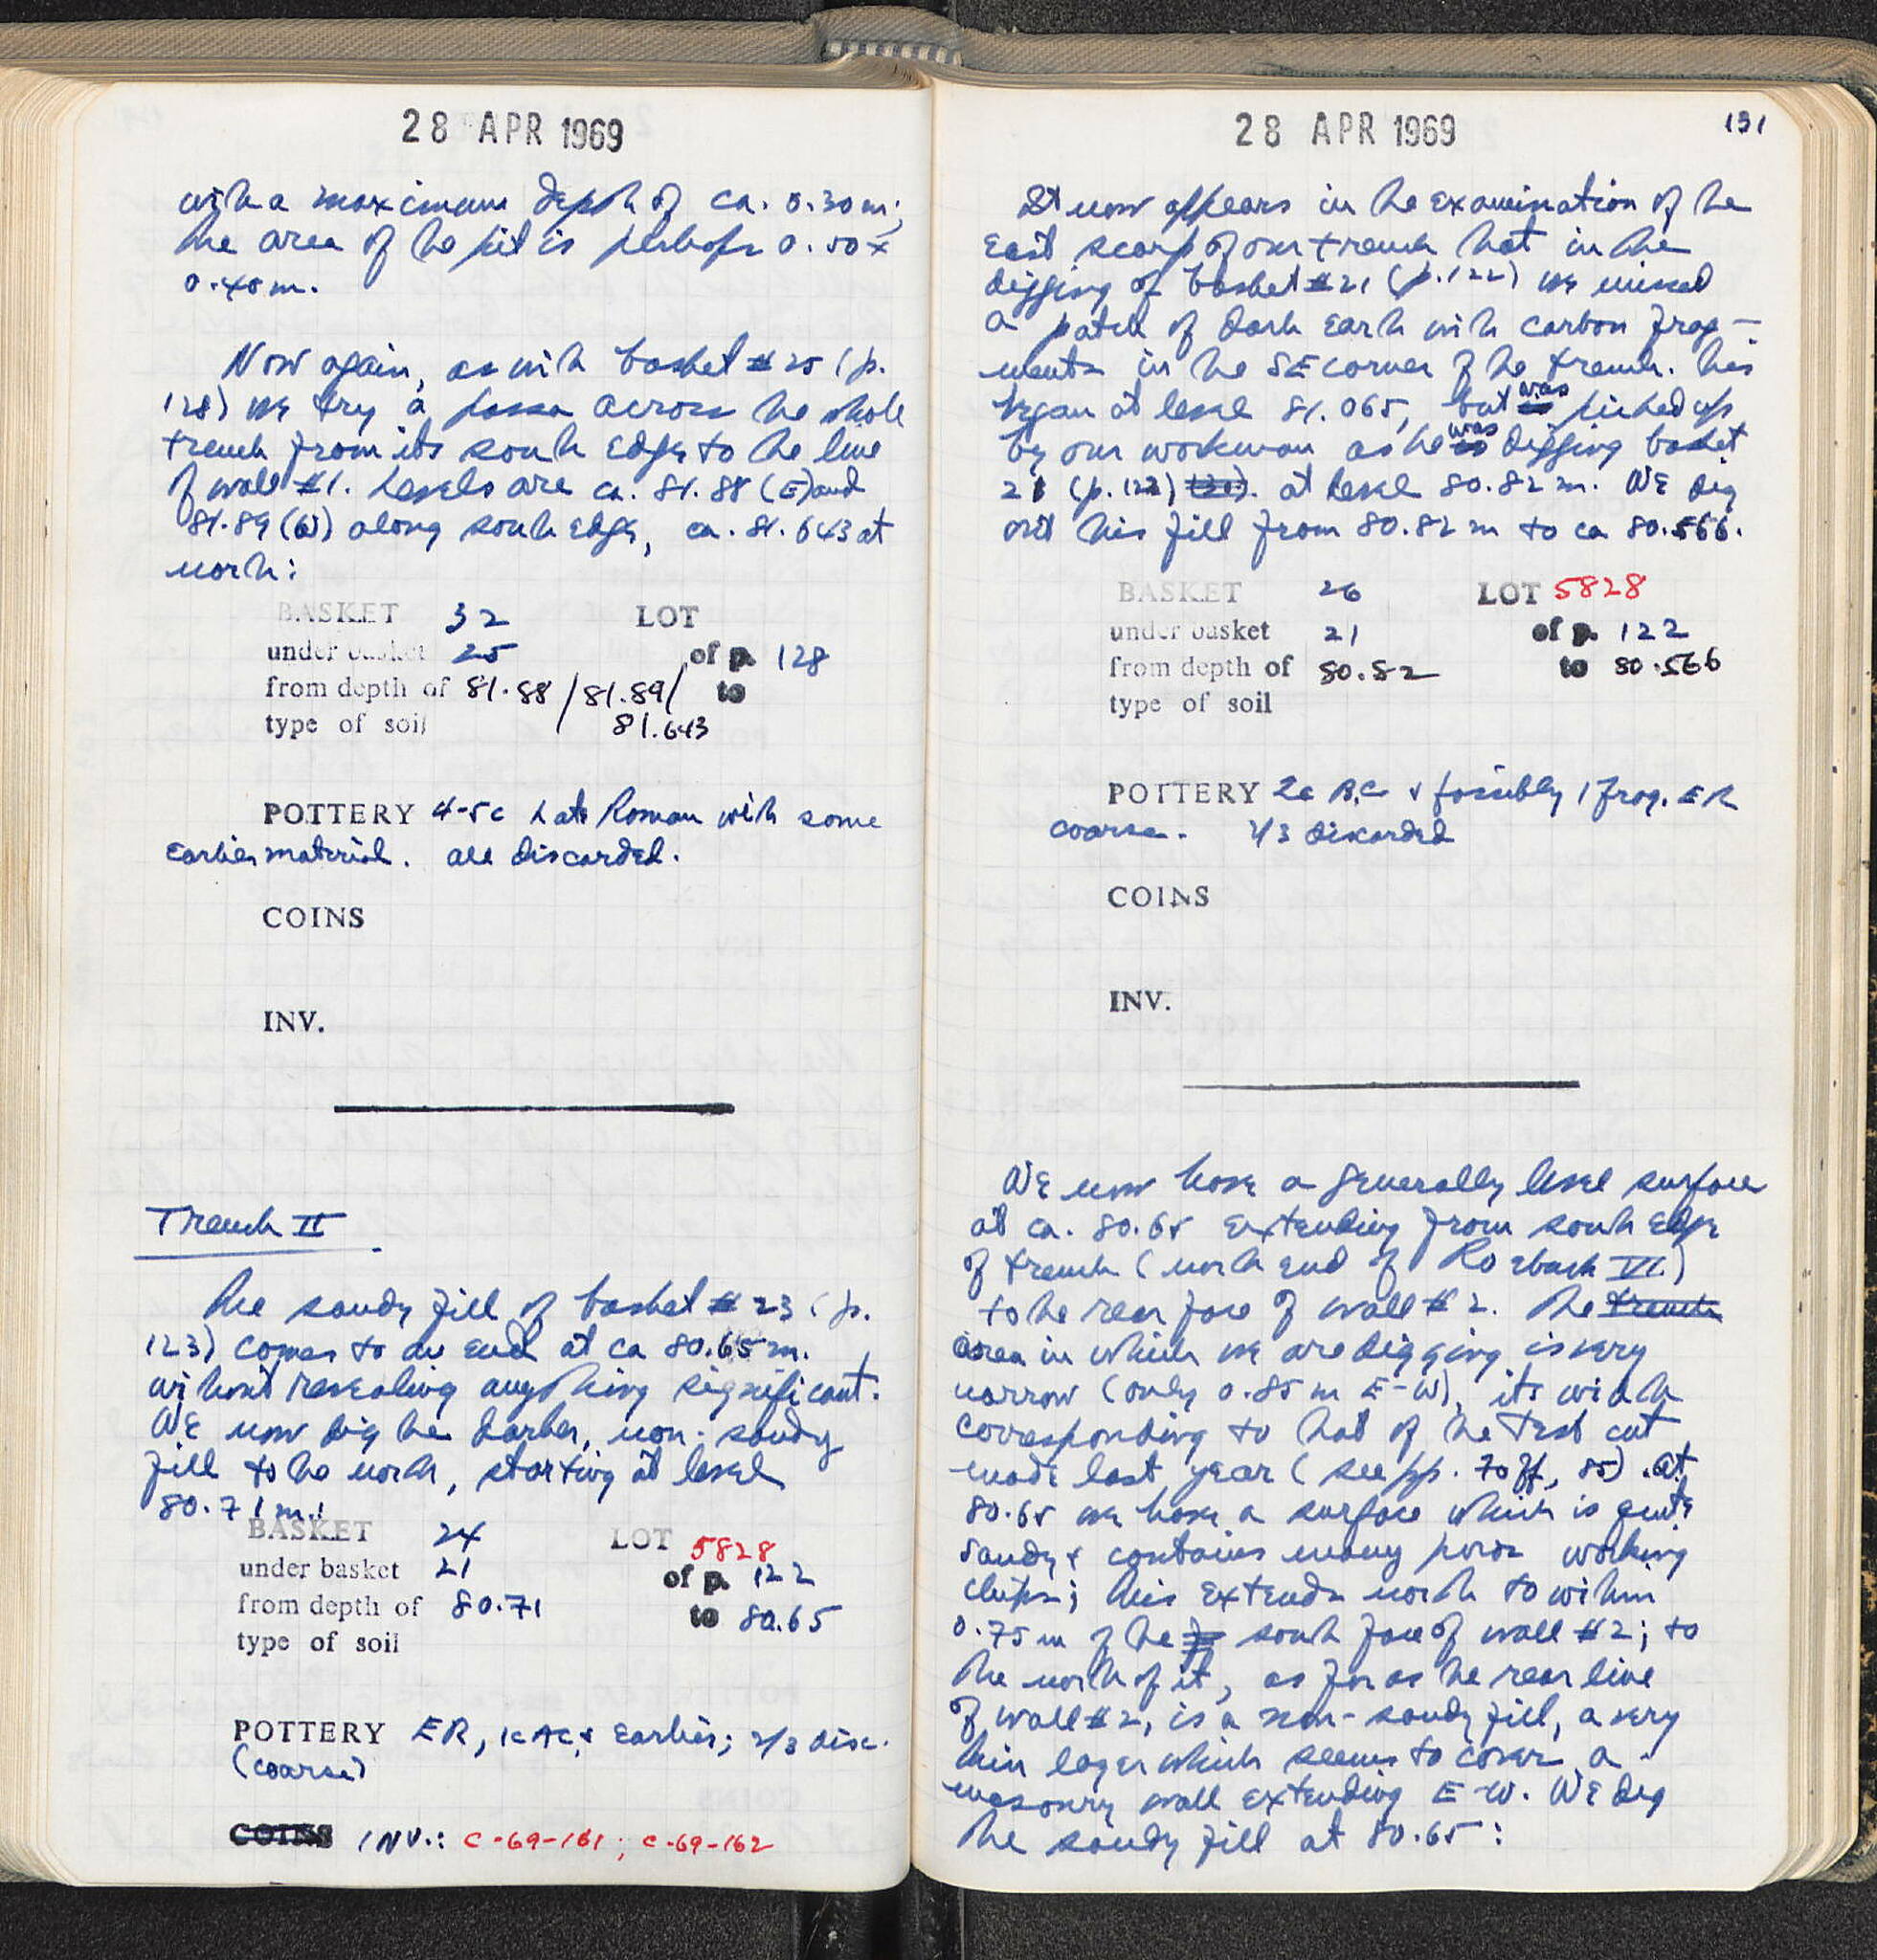 28 APR 1969
with a maximum depth of ca. 0.30 m;
the area of the pit is perhaps 0.50 x
0.40 m.
Now again, as with basket #25 (p.
128) we try a passa across the whole
trench from its south edge to the line
of wall #1. Levels are ca. 81.88 (E) and
81.89 (W) along south edge, ca. 81.643 at
north:
BASKET 32 LOT
under basket 25 of p. 128
from depth of 81.88 / 81.89 / to
type of soil 81.643
POTTERY 4-5c Late Roman with some
earlier material. all discarded.
COINS
INV.
Trench II
The sandy fill of basket #23 (p.
123) comes to an end at ca 80.65 m.
without revealing anything significant.
We now dig the darker, non-sandy
fill to the north, starting at level
80.71 m.:
BASKET 24 LOT 5828
under basket 21 of p. 122
from depth of 80.71 to 80.65
type of soil
POTTERY ER, 1c AC, & earlier; 2/3 disc.
(coarse)
COINS INV.: C-69-161; C-69-162
28 APR 1969 131
It now appears in the examination of the
east scarp of our trench that in the
digging of basket #21 (p.122) we missed
a patch of dark earth with carbon frag-
ments in the SE corner of the trench. This
began at level 81.065, but was picked up
by our workman as he was digging basket
21 (p.122) at level 80.82 m. We dig
out this fill from 80.82 m to ca 80.566.
BASKET 26 LOT 5828
under basket 21 of p. 122
from depth of 80.82 to 80.566
type of soil
POTTERY 2c B.C. & possibly 1 frag. ER
coarse. 2/3 discarded
COINS
INV.
We now have a generally level surface
at ca. 80.65 extending from south edge
of trench (north end of Roebuck VI.)
to the rear face of wall #2. The trench
area in which we are digging is very
narrow (only 0.85 m E-W), its width
corresponding to that of the test cut
made last year (see pp. 70ff, 85). At
80.65 we have a surface which is quite
sandy & contains many poros working
chips; this extends north to within
0.75 m of the south face of wall #2; to
the north of it, as far as the rear line
of wall #2, is a non-sandy fill, a very
thin layer which seems to cover a
masonry wall extending E-W. We dig
the sandy fill at 80.65: